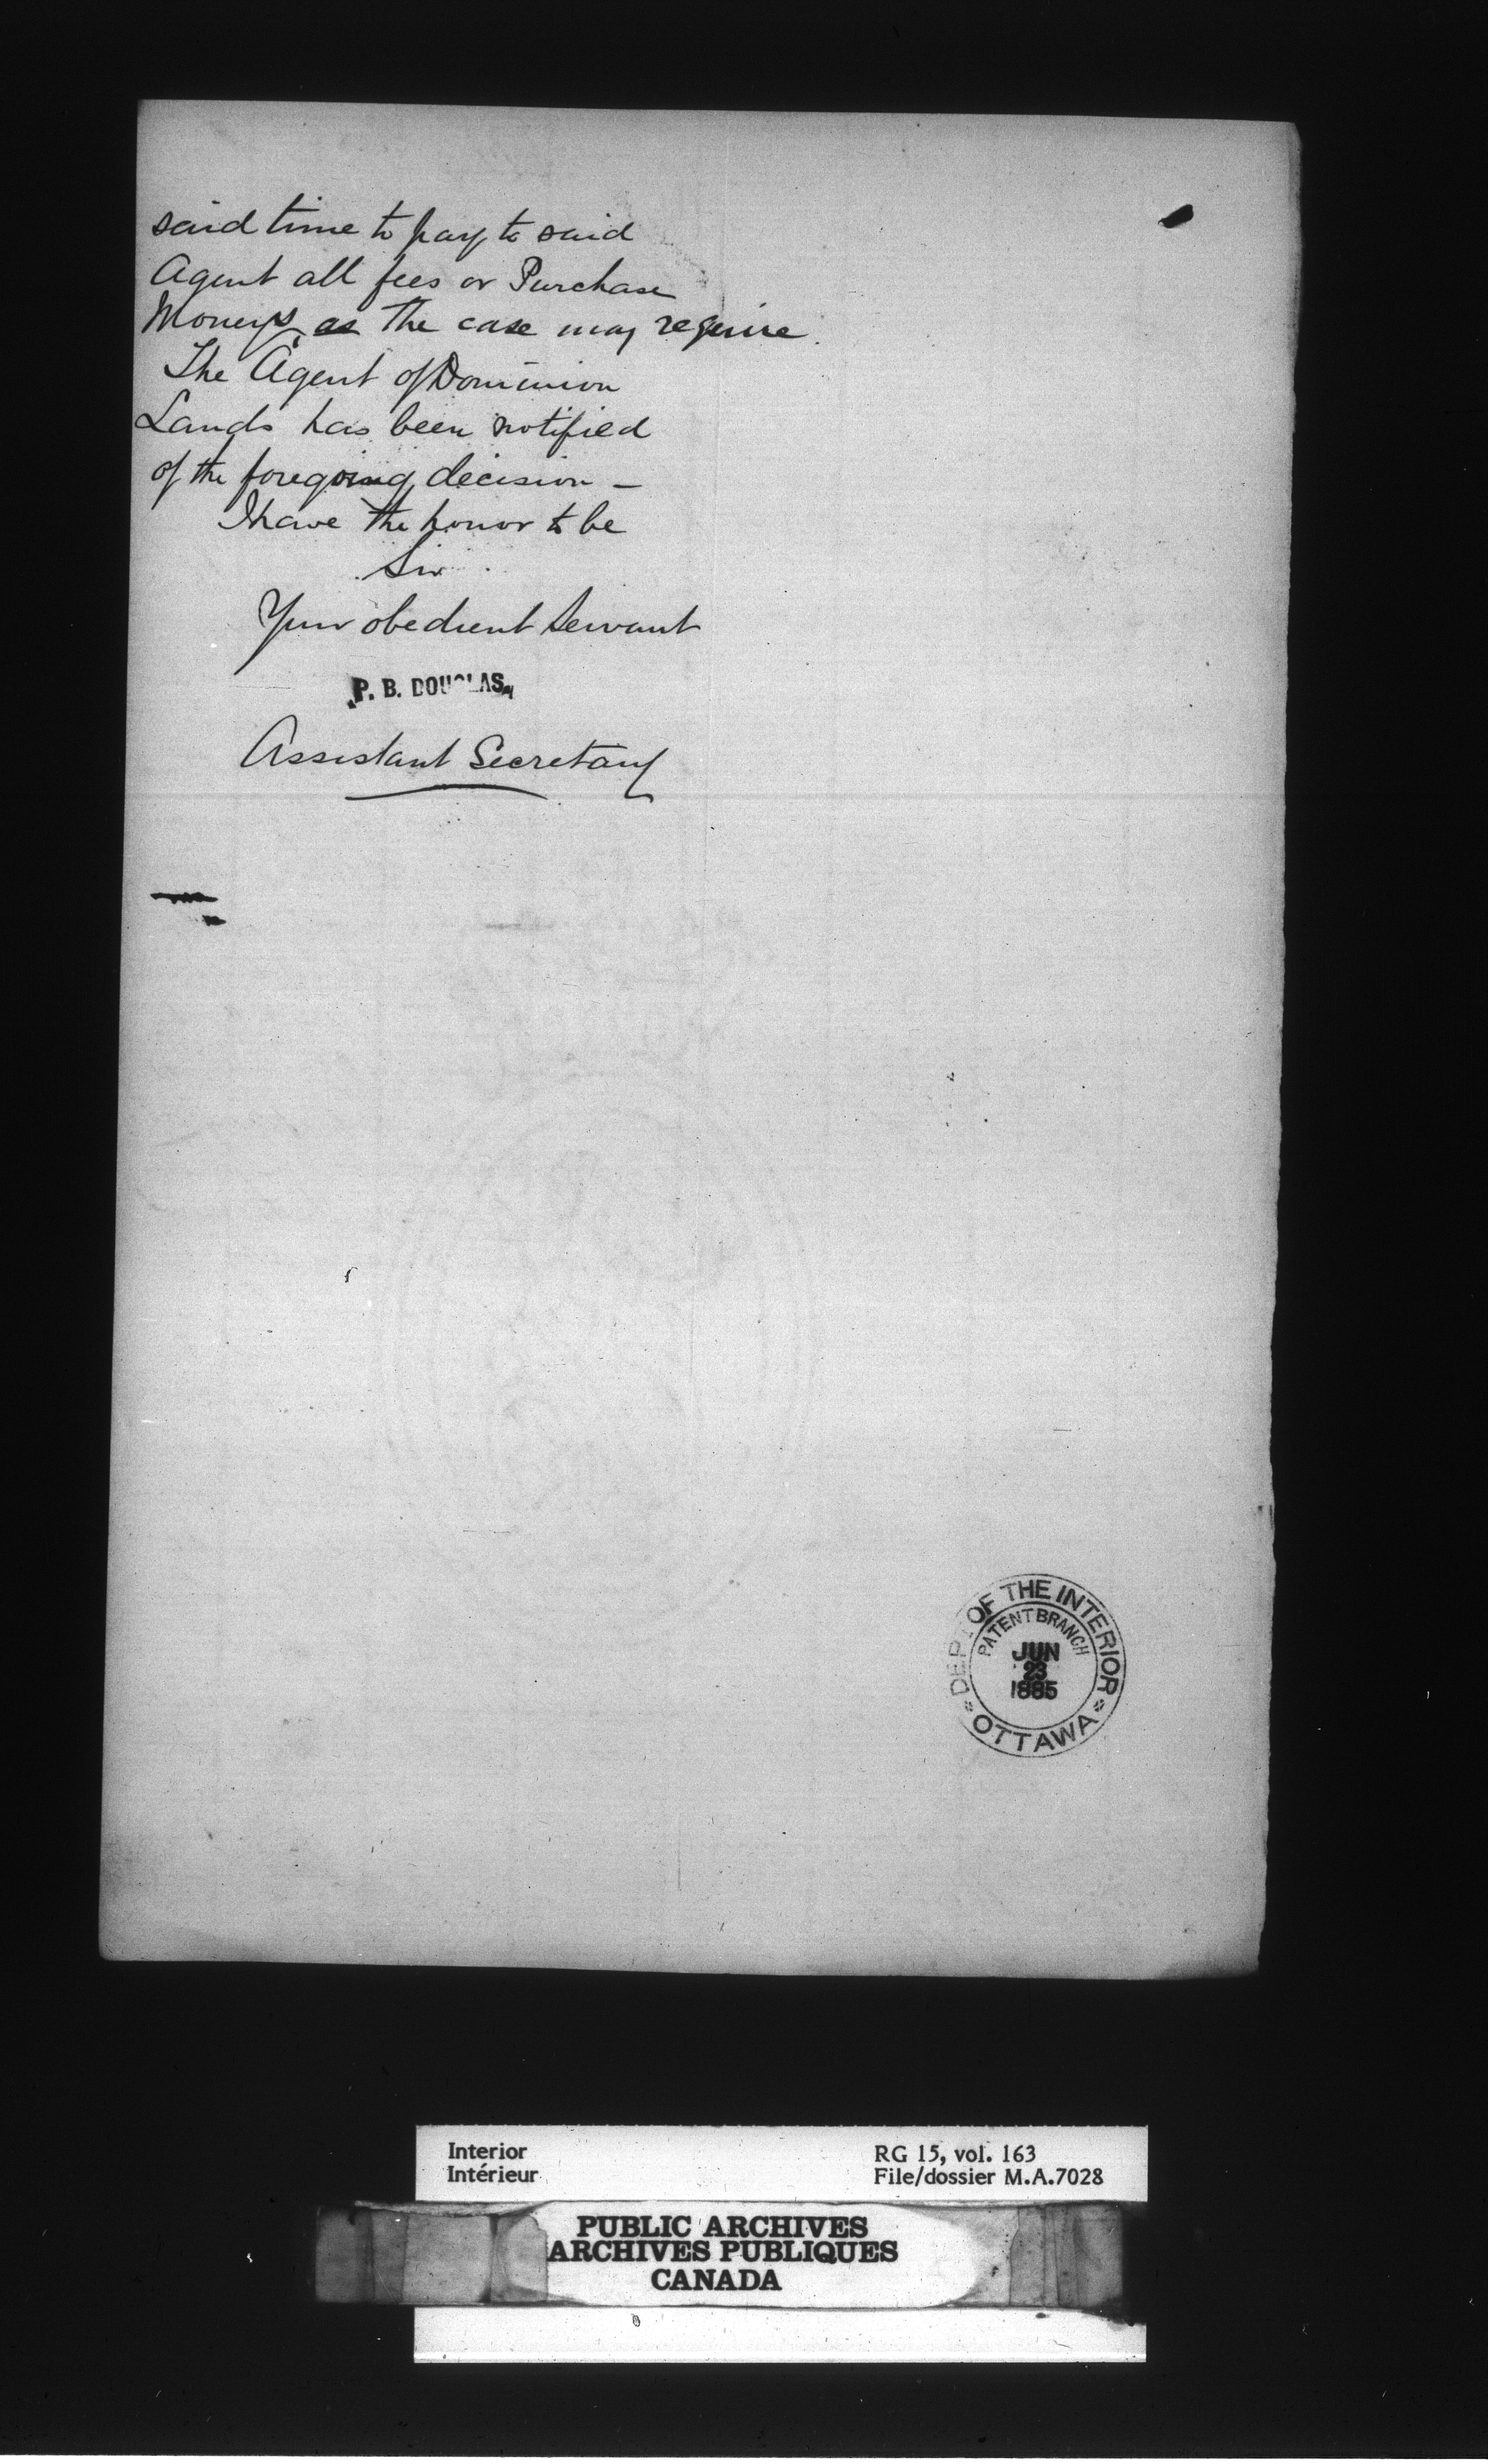 said time to pay to said
Agent all fees or Purchase
Moneys, as the case may require.
The Agent of Dominion
Lands has been notified
of the foregoing decision –
I have the honor to be
Sir
Your obedient Servant
P. B. DOUGLAS,
Assistant Secretary
DEPT OF THE INTERIOR
PATENT BRANCH
JUN
23
1885
OTTAWA
Interior
Intérieur
RG 15, vol. 163
File/dossier M.A.7028
PUBLIC ARCHIVES
ARCHIVES PUBLIQUES
CANADA